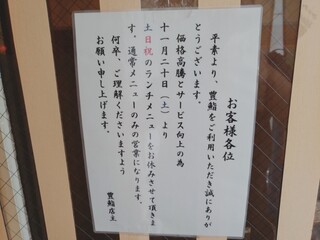 お客様各位
平素より、豊鮨をご利用いただき誠にありが
とうございます。
価格高騰とサービス向上の為
十一月二十日（土）より
土日祝のランチメニューをお休みさせて頂きま
す。通常メニューのみの営業になります。
何卒、ご理解くださいますよう
お願い申し上げます。
豊鮨店主